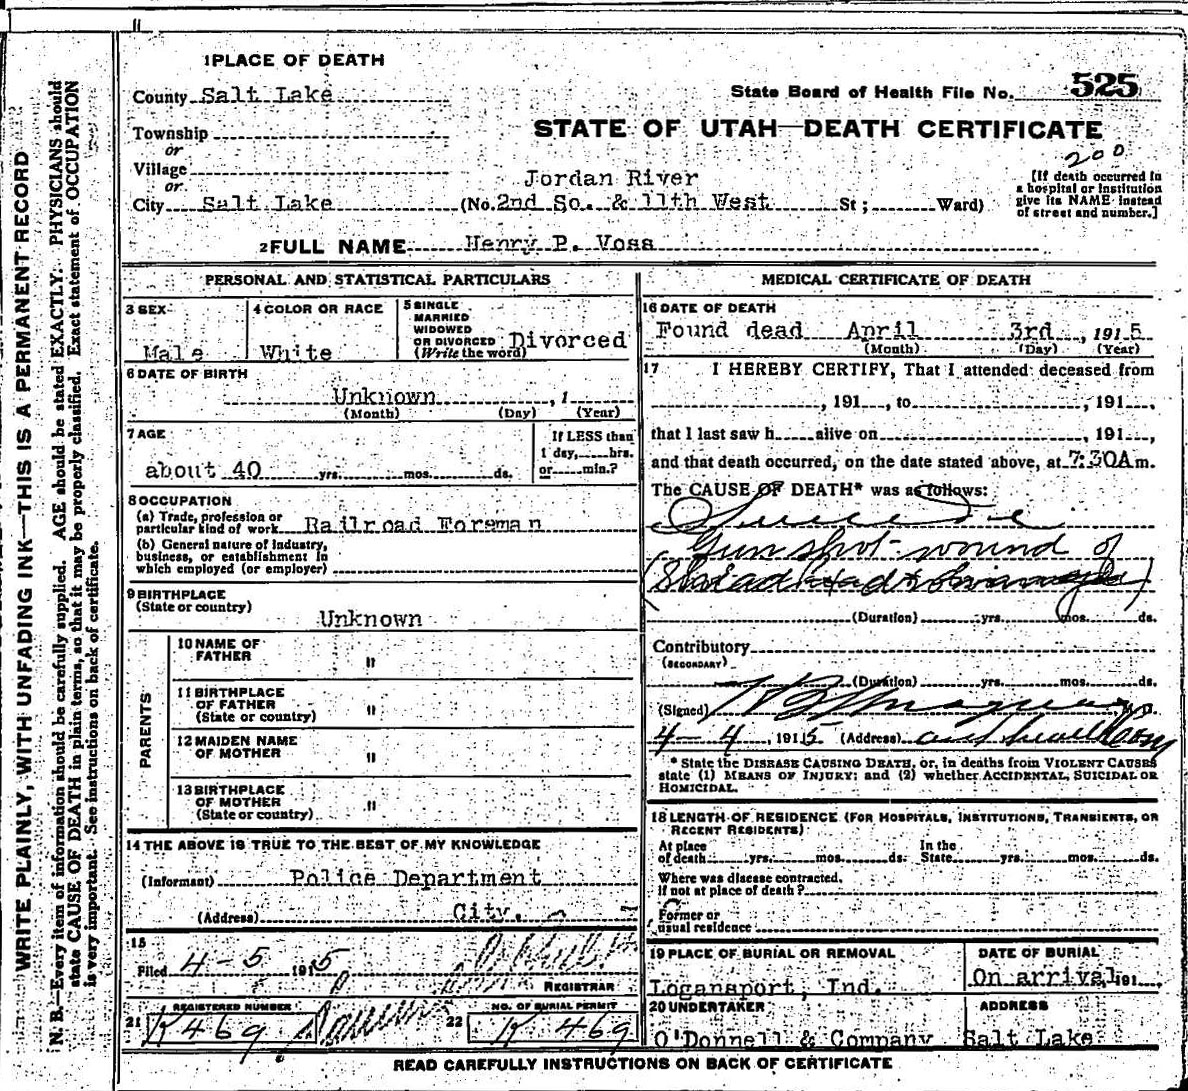 1 PLACE OF DEATH
County Salt Lake
State Board of Health File No. 525
Township
or
STATE OF UTAH—DEATH CERTIFICATE
200
Village
or
City Salt Lake
Jordan River
(No. 2nd So. & 11th West St; Ward)
[If death occurred in
a hospital or institution
give its NAME instead
of street and number.]
2 FULL NAME Henry P. Voss
PERSONAL AND STATISTICAL PARTICULARS
3 SEX
Male
4 COLOR OR RACE
White
5 SINGLE
MARRIED
WIDOWED
OR DIVORCED
(Write the word)
Divorced
6 DATE OF BIRTH
Unknown , 1
(Month) (Day) (Year)
7 AGE
about 40 yrs. mos. ds.
If LESS than
1 day, hrs.
or min.?
8 OCCUPATION
(a) Trade, profession or
particular kind of work Railroad Foreman
(b) General nature of industry,
business, or establishment in
which employed (or employer)
9 BIRTHPLACE
(State or country)
Unknown
PARENTS
10 NAME OF
FATHER "
11 BIRTHPLACE
OF FATHER "
(State or country)
12 MAIDEN NAME
OF MOTHER "
13 BIRTHPLACE
OF MOTHER "
(State or country)
14 THE ABOVE IS TRUE TO THE BEST OF MY KNOWLEDGE
(Informant) Police Department
(Address) City.
15
Filed 4-5 1915
REGISTRAR
REGISTERED NUMBER
21 K 469
NO. OF BURIAL PERMIT
22 K 469
MEDICAL CERTIFICATE OF DEATH
16 DATE OF DEATH
Found dead April 3rd , 1915
(Month) (Day) (Year)
17 I HEREBY CERTIFY, That I attended deceased from
, 191 , to , 191 ,
that I last saw h alive on , 191 ,
and that death occurred, on the date stated above, at 7:30A m.
The CAUSE OF DEATH* was as follows:
Suicide
Gun shot wound of
(Duration) yrs. mos. ds.
Contributory
(SECONDARY)
(Duration) yrs. mos. ds.
(Signed) M. D.
4-4, 1915 (Address)
* State the DISEASE CAUSING DEATH, or, in deaths from VIOLENT CAUSES
state (1) MEANS OF INJURY; and (2) whether ACCIDENTAL, SUICIDAL OR
HOMICIDAL.
18 LENGTH OF RESIDENCE (FOR HOSPITALS, INSTITUTIONS, TRANSIENTS, OR
RECENT RESIDENTS)
At place
of death yrs. mos. ds.
In the
State yrs. mos. ds.
Where was disease contracted,
if not at place of death?
Former or
usual residence
19 PLACE OF BURIAL OR REMOVAL
Logansport, Ind.
DATE OF BURIAL
On arrival, 191
20 UNDERTAKER
O'Donnell & Company
ADDRESS
Salt Lake
READ CAREFULLY INSTRUCTIONS ON BACK OF CERTIFICATE
WRITE PLAINLY, WITH UNFADING INK—THIS IS A PERMANENT RECORD
N. B.—Every item of information should be carefully supplied. AGE should be stated EXACTLY. PHYSICIANS should
state CAUSE OF DEATH in plain terms, so that it may be properly classified. Exact statement of OCCUPATION
is very important. See instructions on back of certificate.